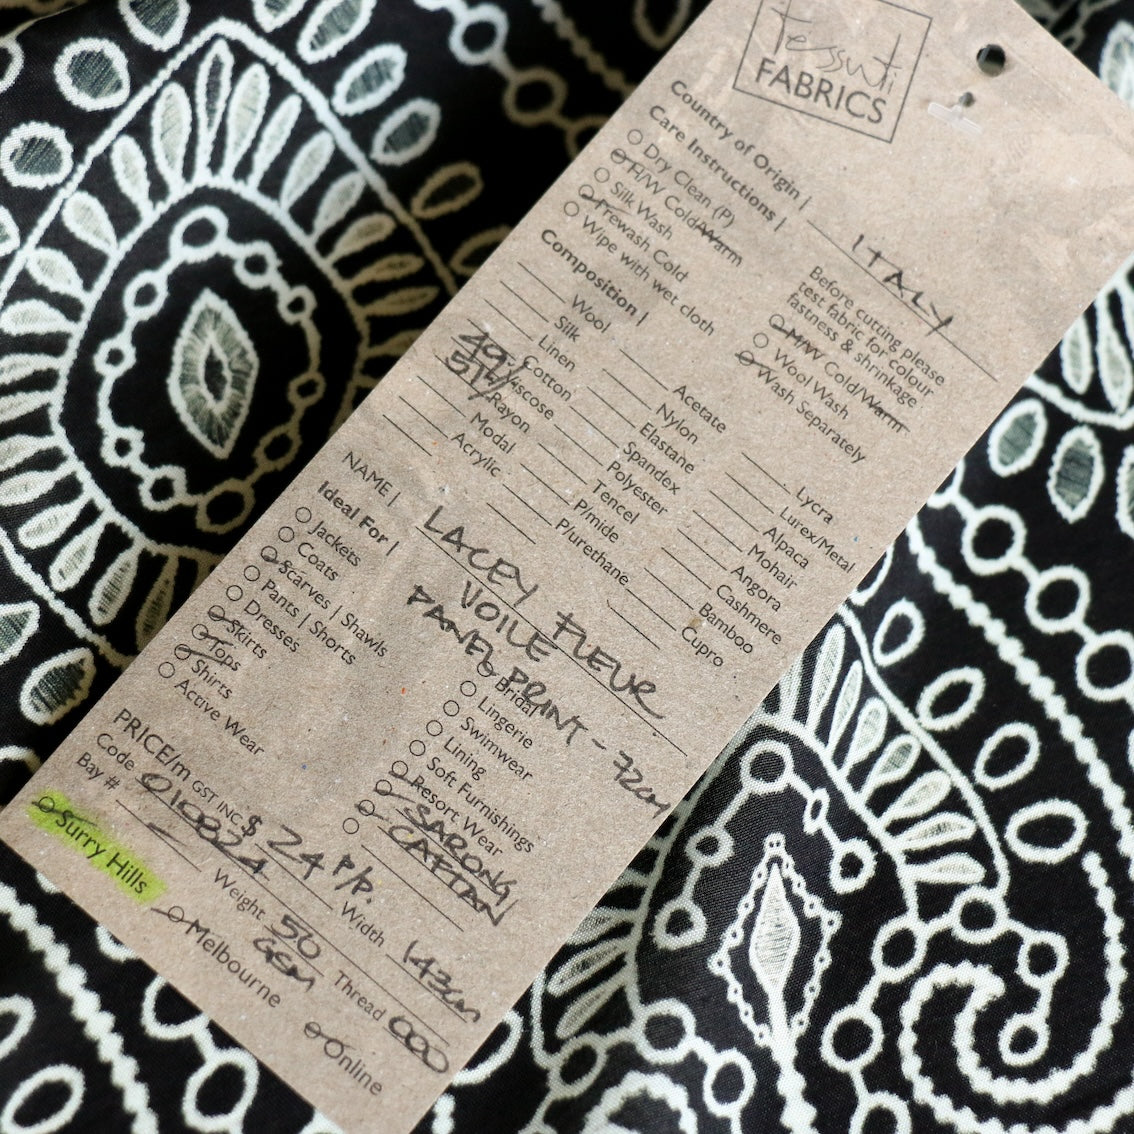 tessuti
FABRICS
Country of Origin | ITALY
Care Instructions |
Dry Clean (P)
H/W Cold/Warm
Silk Wash
Prewash Cold
Wipe with wet cloth
Before cutting please
test fabric for colour
fastness & shrinkage
M/W Cold/Warm
Wool Wash
Wash Separately
Composition |
Wool
Silk
Linen
49% Cotton
51% Viscose
Rayon
Modal
Acrylic
Acetate
Nylon
Elastane
Spandex
Polyester
Tencel
P/mide
P/urethane
Lycra
Lurex/Metal
Alpaca
Mohair
Angora
Cashmere
Bamboo
Cupro
NAME | LACEY FLEUR
VOILE
PANEL PRINT - 72cm
Ideal For |
Jackets
Coats
Scarves | Shawls
Pants | Shorts
Dresses
Skirts
Tops
Shirts
Active Wear
Bridal
Lingerie
Swimwear
Lining
Soft Furnishings
Resort Wear
SARONG
CAFTAN
PRICE/m GST INC $ 24 P/P.
Code 010824 Width 143cm
Bay # - Weight 50 GSM Thread 000
Surry Hills
Melbourne
Online